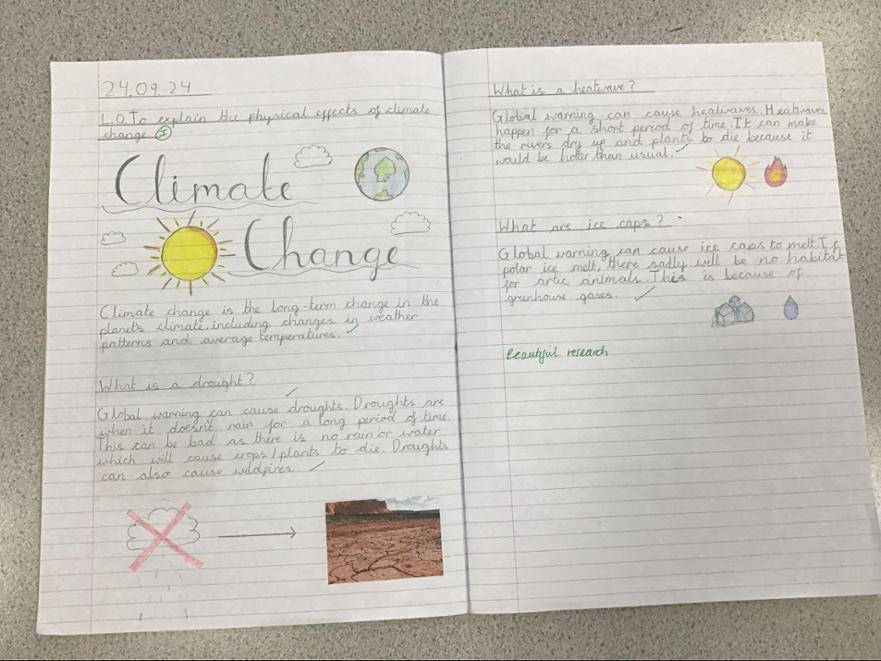 24.09.24
L.O.To explain the physical effects of climate
change I
Climate
Change
Climate change is the long-term change in the
planets climate, including changes in weather
patterns and average temperatures.
What is a drought?
Global warning can cause droughts. Droughts are
when it doesn't rain for a long period of time.
This can be bad as there is no rain or water
which will cause crops/plants to die. Droughts
can also cause wildfires.
What is a heatwave?
Global warning can cause heatwaves. Heatwaves
happen for a short period of time. It can make
the rivers dry up and plants to die because it
would be hotter than usual.
What are ice caps?
Global warning can cause ice caps to melt. If
polar ice melt, there sadly will be no habitat
for artic animals. This is because of
greenhouse gases.
Beautiful research